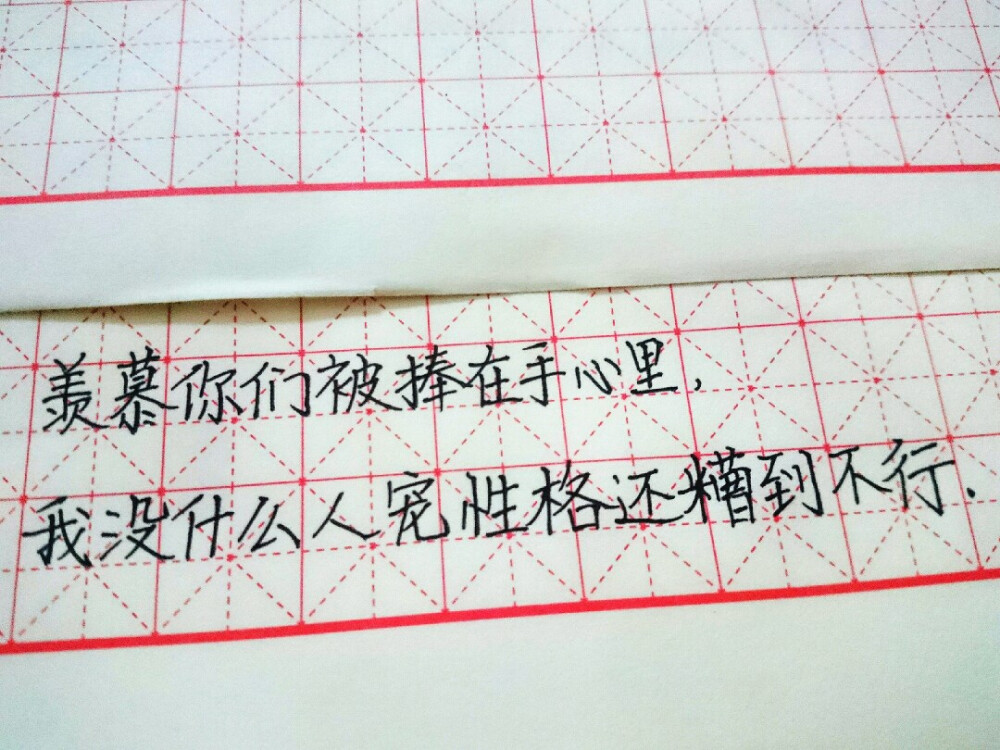 羡慕你们被捧在手心里.
我没什么人宠性格还糟到不行.